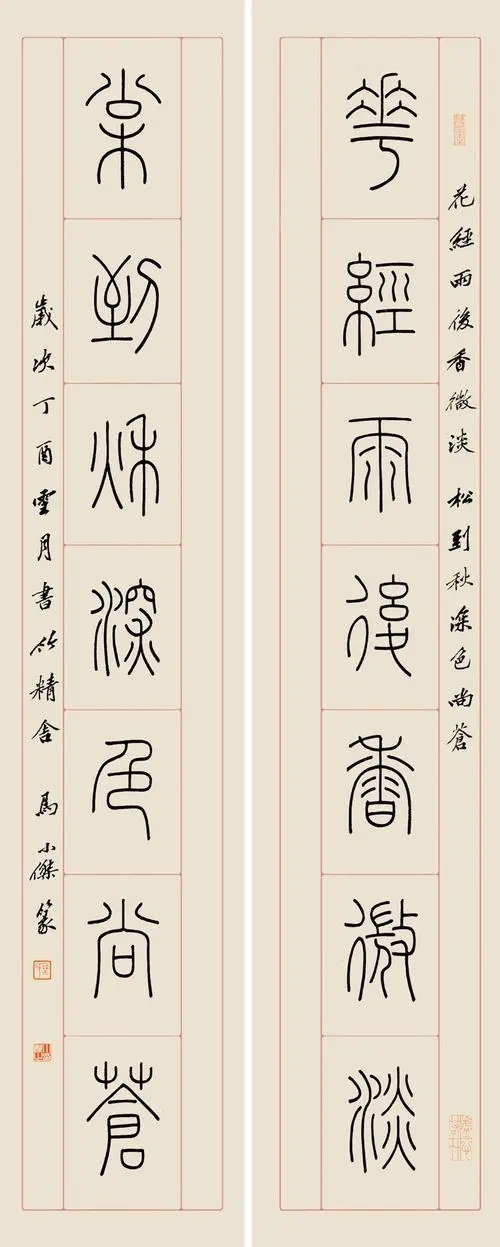 花經雨後香微淡 松到秋深色尚蒼
華經雨後香微淡
松到秋深色尚蒼
歲次丁酉雪月書竹精舍 馬小傑篆